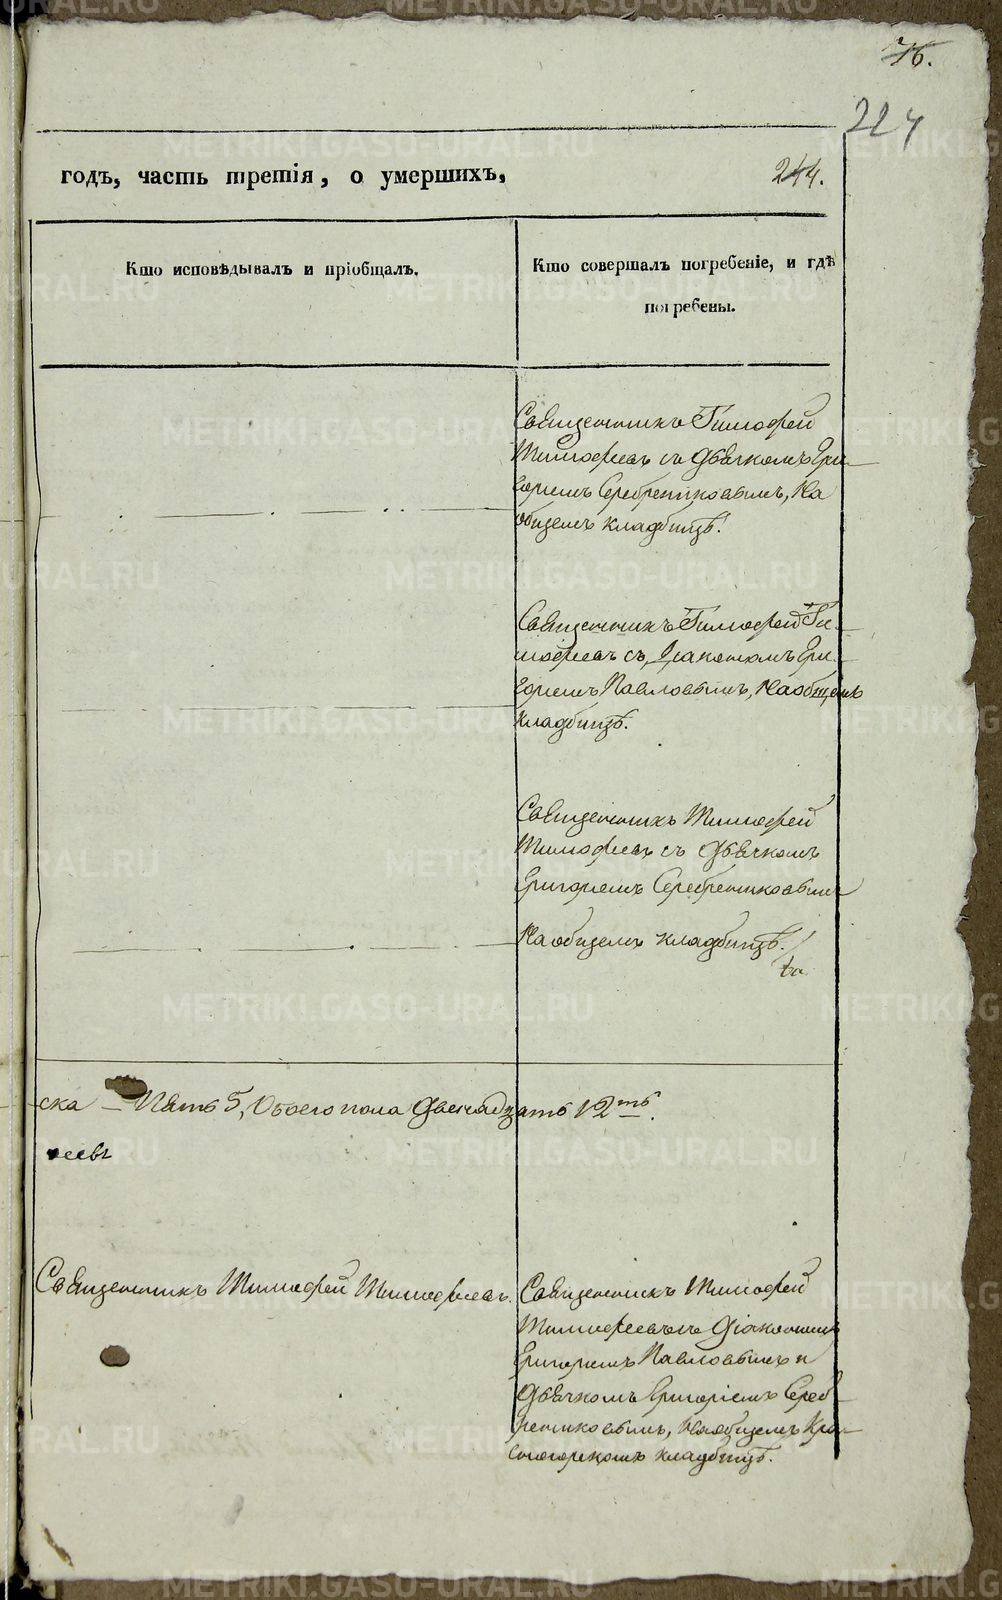 76.
224
годъ, часть третія, о умершихъ,
244.
Кто исповѣдывалъ и пріобщалъ.
Кто совершалъ погребеніе, и гдѣ
погребены.
Священникъ Тимофей
Тимофеевъ съ Дьячкомъ Гри-
горіемъ Серебренниковымъ, На
общемъ кладбищѣ.
Священникъ Тимофей Ти-
мофеевъ съ Діакономъ Гри-
горіемъ Павловымъ, На общемъ
кладбищѣ.
Священникъ Тимофей
Тимофеевъ съ Дьячкомъ
Григоріемъ Серебренниковымъ
На общемъ кладбищѣ.
ска – Пять 5, Обоего пола Двенадцать 12ть.
Священникъ Тимофей Тимофеевъ.
Священникъ Тимофей
Тимофеевъ съ Діакономъ
Григоріемъ Павловымъ и
Дьячкомъ Григоріемъ Сереб-
ренниковымъ, На общемъ Кра-
сногорскомъ кладбищѣ.
METRIKI.GASO-URAL.RU